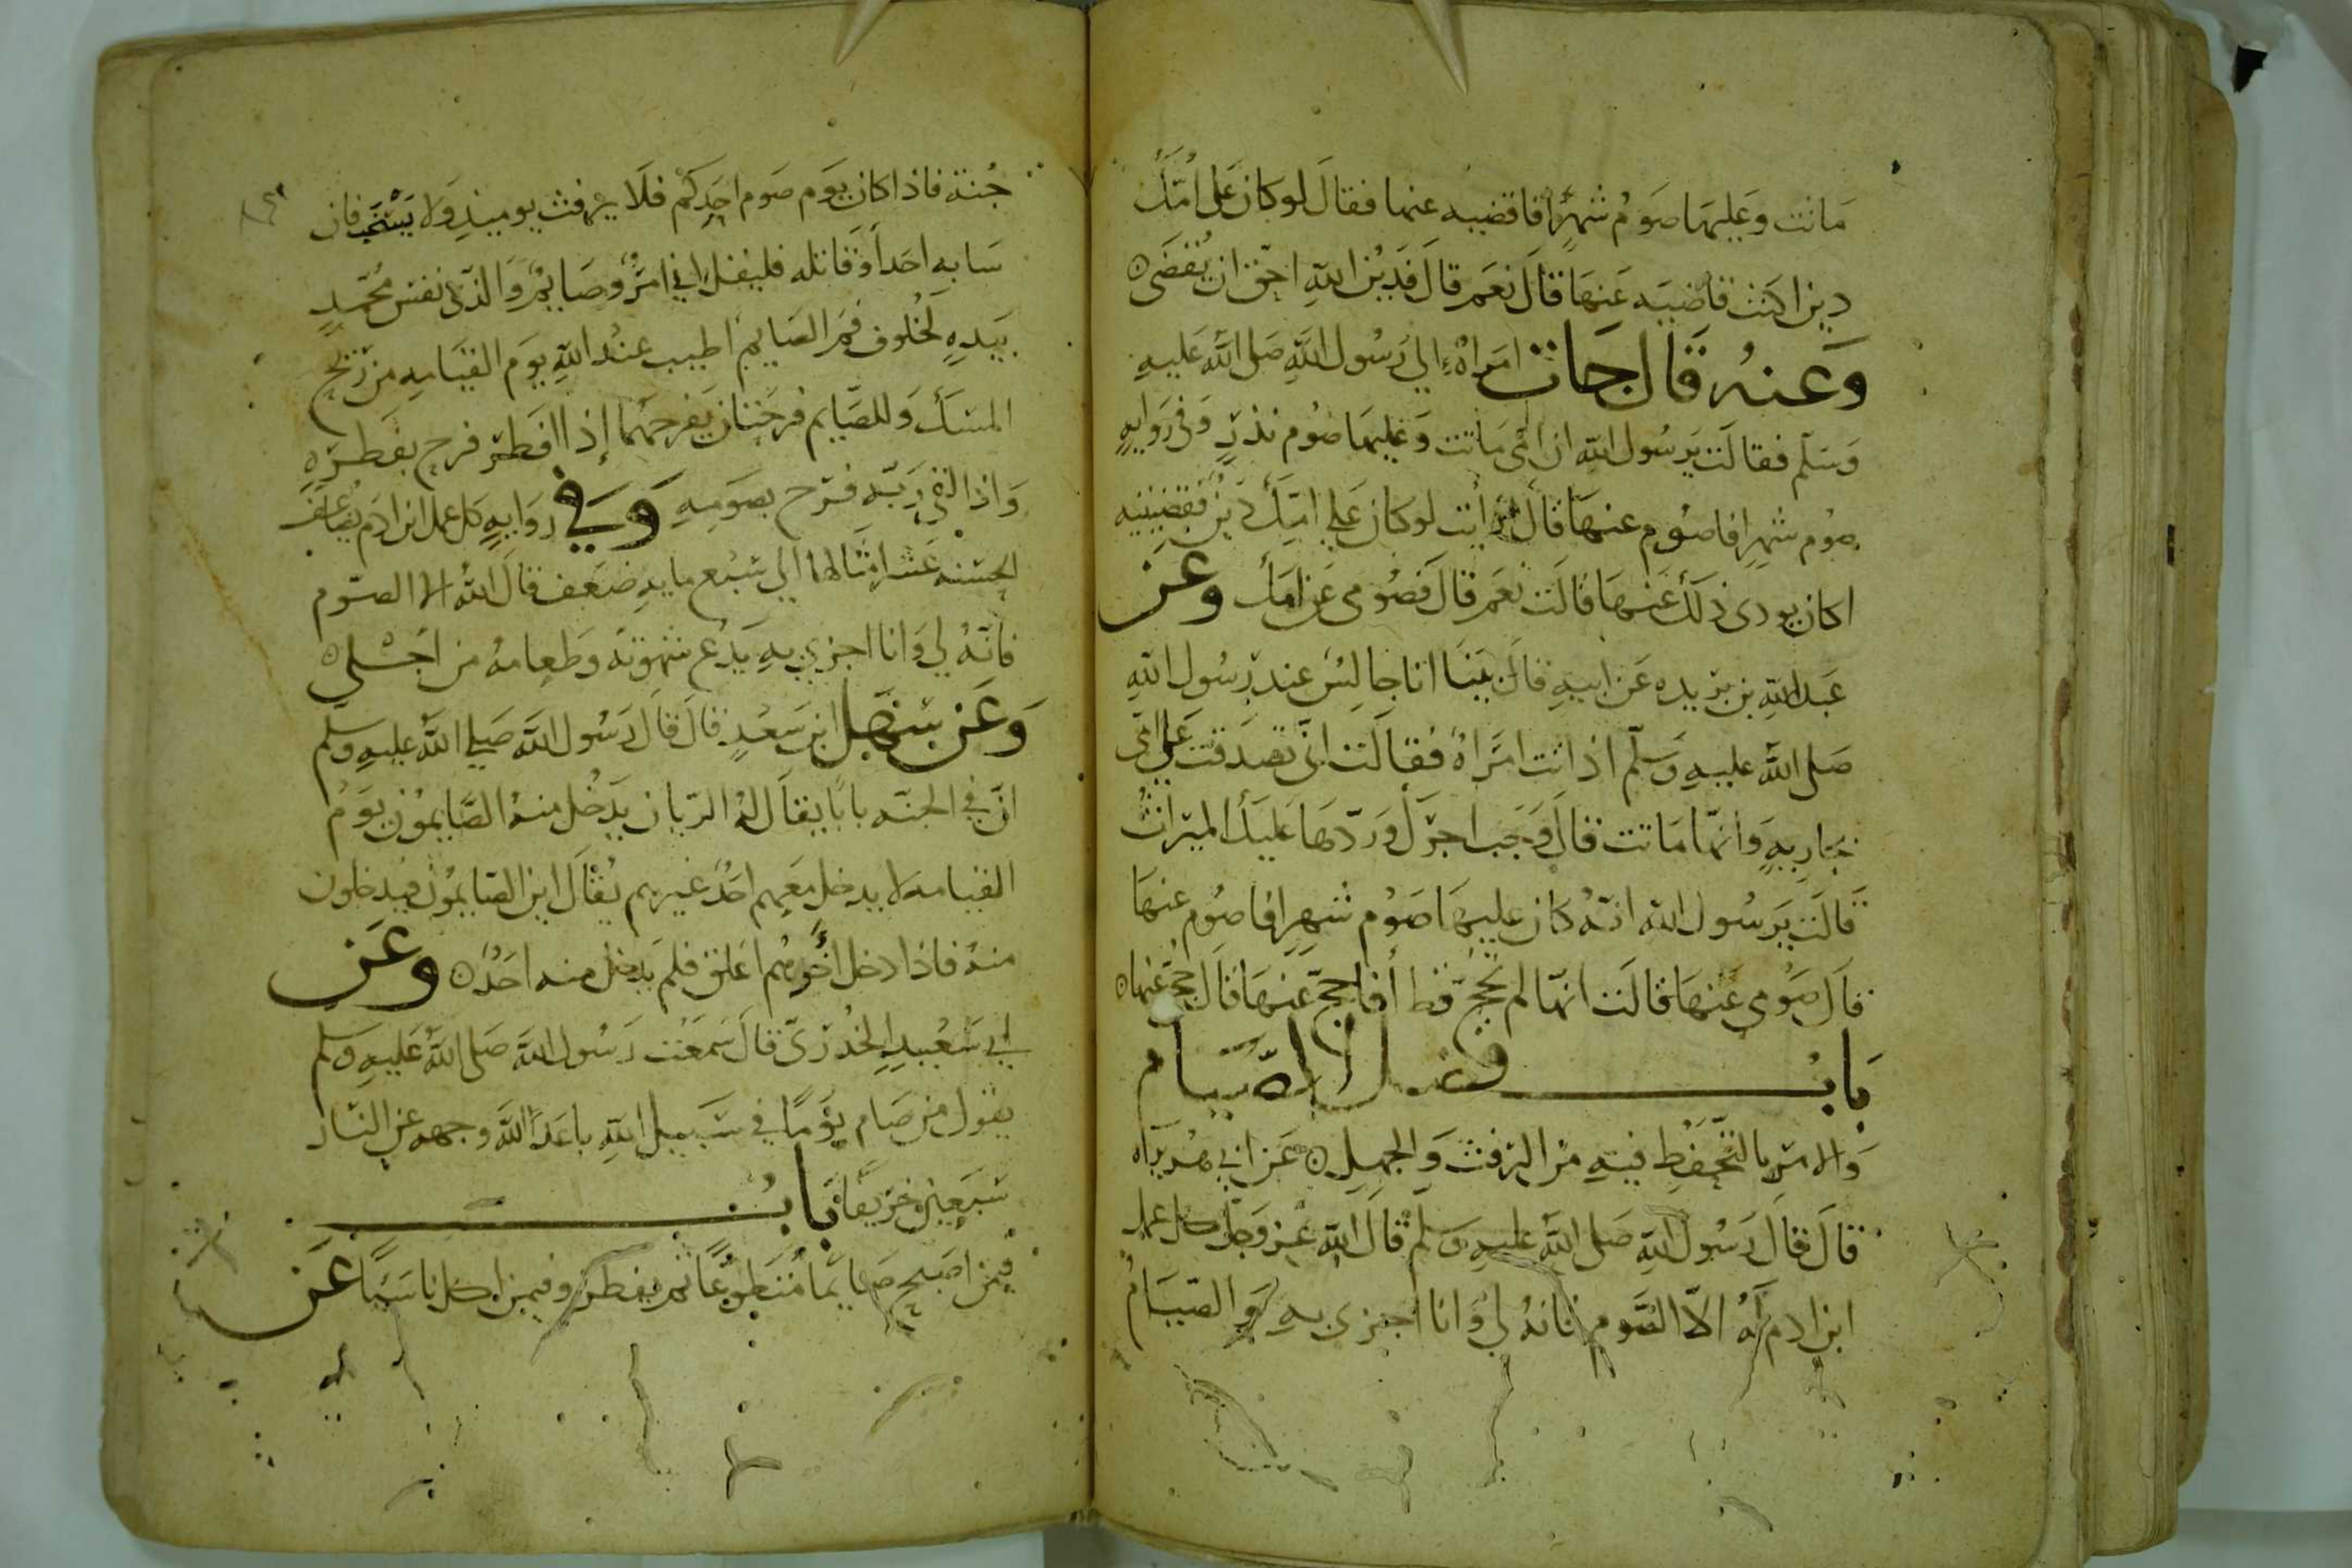 ماتت وعليها صوم شهر أفاقضيه عنها فقال لو كان على امك
دين اكنت قاضيه عنها قال نعم قال فدين الله احق ان يقضى
وعنه قال جات امراة إلي رسول الله صلى الله عليه
وسلم فقالت يرسول الله ان امي ماتت وعليها صوم نذر وفي روايه
صوم شهر افاصوم عنها قال أرأيت لو كان على امك دين فقضيتيه
اكان يودى ذلك عنها قالت نعم قال فصومى عن امك وعن
عبد الله بن بريده عن ابيه قال بينا انا جالس عند رسول الله
صلى الله عليه وسلم اذ اتت امراة فقالت انى تصدقت على امى
بجاريه وانها ماتت قال وجب اجرك وردها عليك الميراث
قالت يرسول الله انه كان عليها صوم شهر افاصوم عنها
قال صومي عنها قالت انها لم تحج قط أفاحج عنها قال حجي عنها
باب فضل الصيام
والامر بالتحفظ فيه من الرفث والجهل عن ابي هريرة
قال قال رسول الله صلى الله عليه وسلم قال الله عز وجل كل عمل
ابن ادم له الا الصوم فانه لي وانا اجزي به والصيام
جنة فاذا كان يوم صوم احدكم فلا يرفث يوميذ ولا يسخب فان
سابه احد أو قاتله فليقل اني امرؤ صايم والذى نفس محمد
بيده لخلوف فم الصايم اطيب عند الله يوم القيامه من ريح
المسك وللصايم فرحتان يفرحهما إذا افطر فرح بفطره
واذا لقي ربه فرح بصومه وفي روايه كل عمل ابن ادم يضاعف
الحسنه عشر امثالها الي سبع مايه ضعف قال الله الا الصوم
فانه لي وانا اجزي به يدع شهوته وطعامه من اجلي
وعن سهل ابن سعد قال قال رسول الله صلي الله عليه وسلم
ان في الجنه بابا يقال له الريان يدخل منه الصايمون يوم
القيامه لا يدخل معهم احد غيرهم يقال اين الصايمون فيدخلون
منه فاذا دخل أخرهم اغلق فلم يدخل منه احد وعن
ابي سعيد الخدرى قال سمعت رسول الله صلى الله عليه وسلم
يقول من صام يوما في سبيل الله باعد الله وجهه عن النار
سبعين خريفا باب
فيمن اصبح صايما متطوعا ثم يفطر وفيمن اكل ناسيا عن